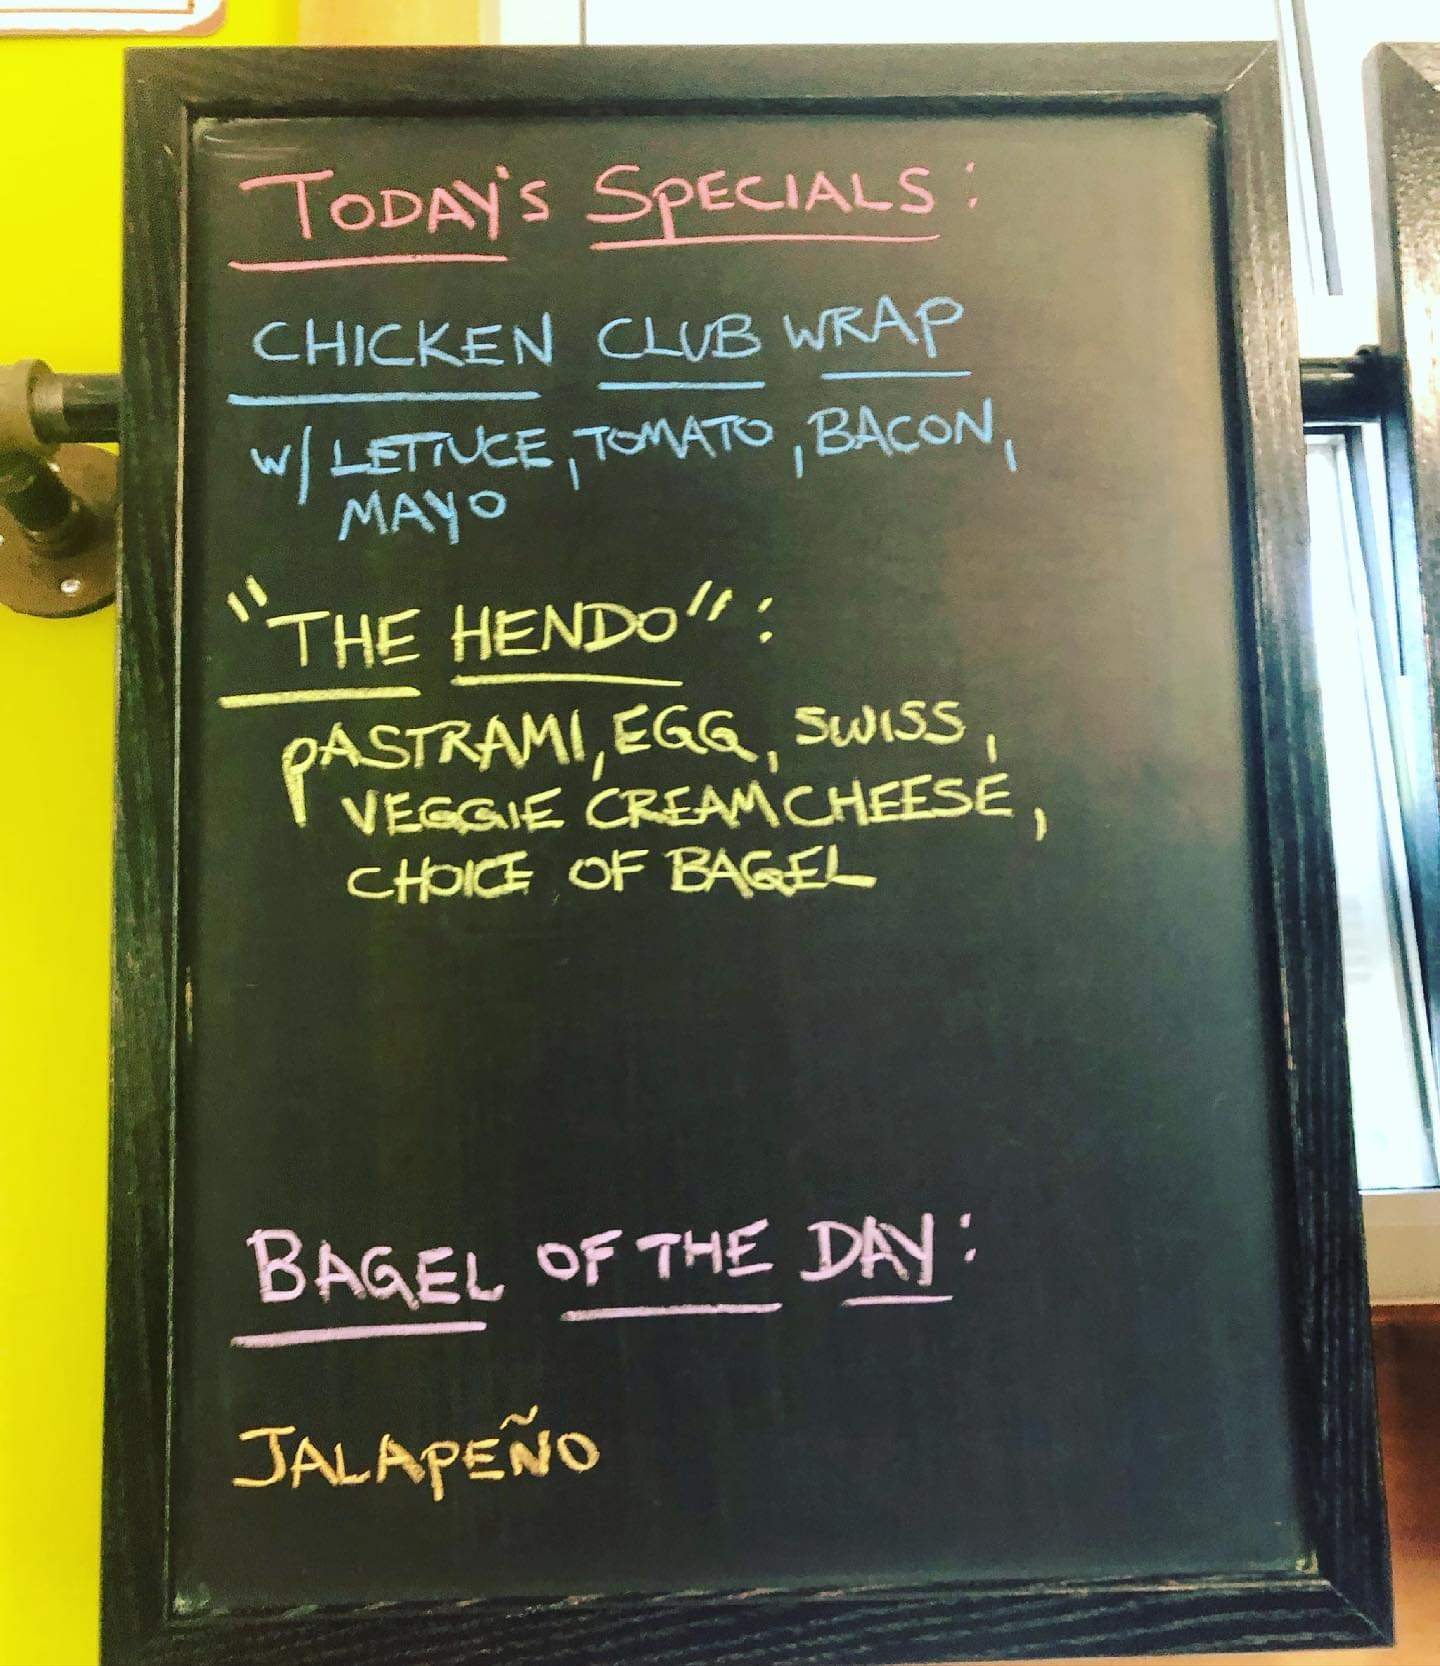 TODAY'S SPECIALS:
CHICKEN CLUB WRAP
W/ LETTUCE, TOMATO, BACON,
MAYO
"THE HENDO":
PASTRAMI, EGG, SWISS,
VEGGIE CREAM CHEESE,
CHOICE OF BAGEL
BAGEL OF THE DAY:
JALAPEÑO